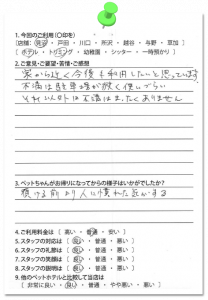 1.今回のご利用(○印を)
[店舗: 蕨 ・ 戸田 ・ 川口 ・ 所沢 ・ 越谷 ・ 与野 ・ 草加 ]
[ホテル ・ トリミング ・ 幼稚園 ・ シッター ・ 一時預かり ]
2.ご意見・ご要望・苦情・ご感想
家から近く今後も利用したいと思っています。
不満は駐車場が狭く使いづらい
それ以外は不満はまったくありません
3.ペットちゃんがお帰りになってからの様子はいかがでしたか?
預ける前より人に慣れた気がする
4.ご利用料金は [ 高い ・ 普通 ・ 安い ]
5.スタッフの対応は [ 良い ・ 普通 ・ 悪い ]
6.スタッフの礼節は [ 良い ・ 普通 ・ 悪い ]
7.スタッフの笑顔は [ 良い ・ 普通 ・ 悪い ]
8.スタッフの説明は [ 良い ・ 普通 ・ 悪い ]
9.他のペットホテルと比較して当店は
[ 非常に良い ・ 良い ・ 普通 ・ やや悪い ・ 悪い ]